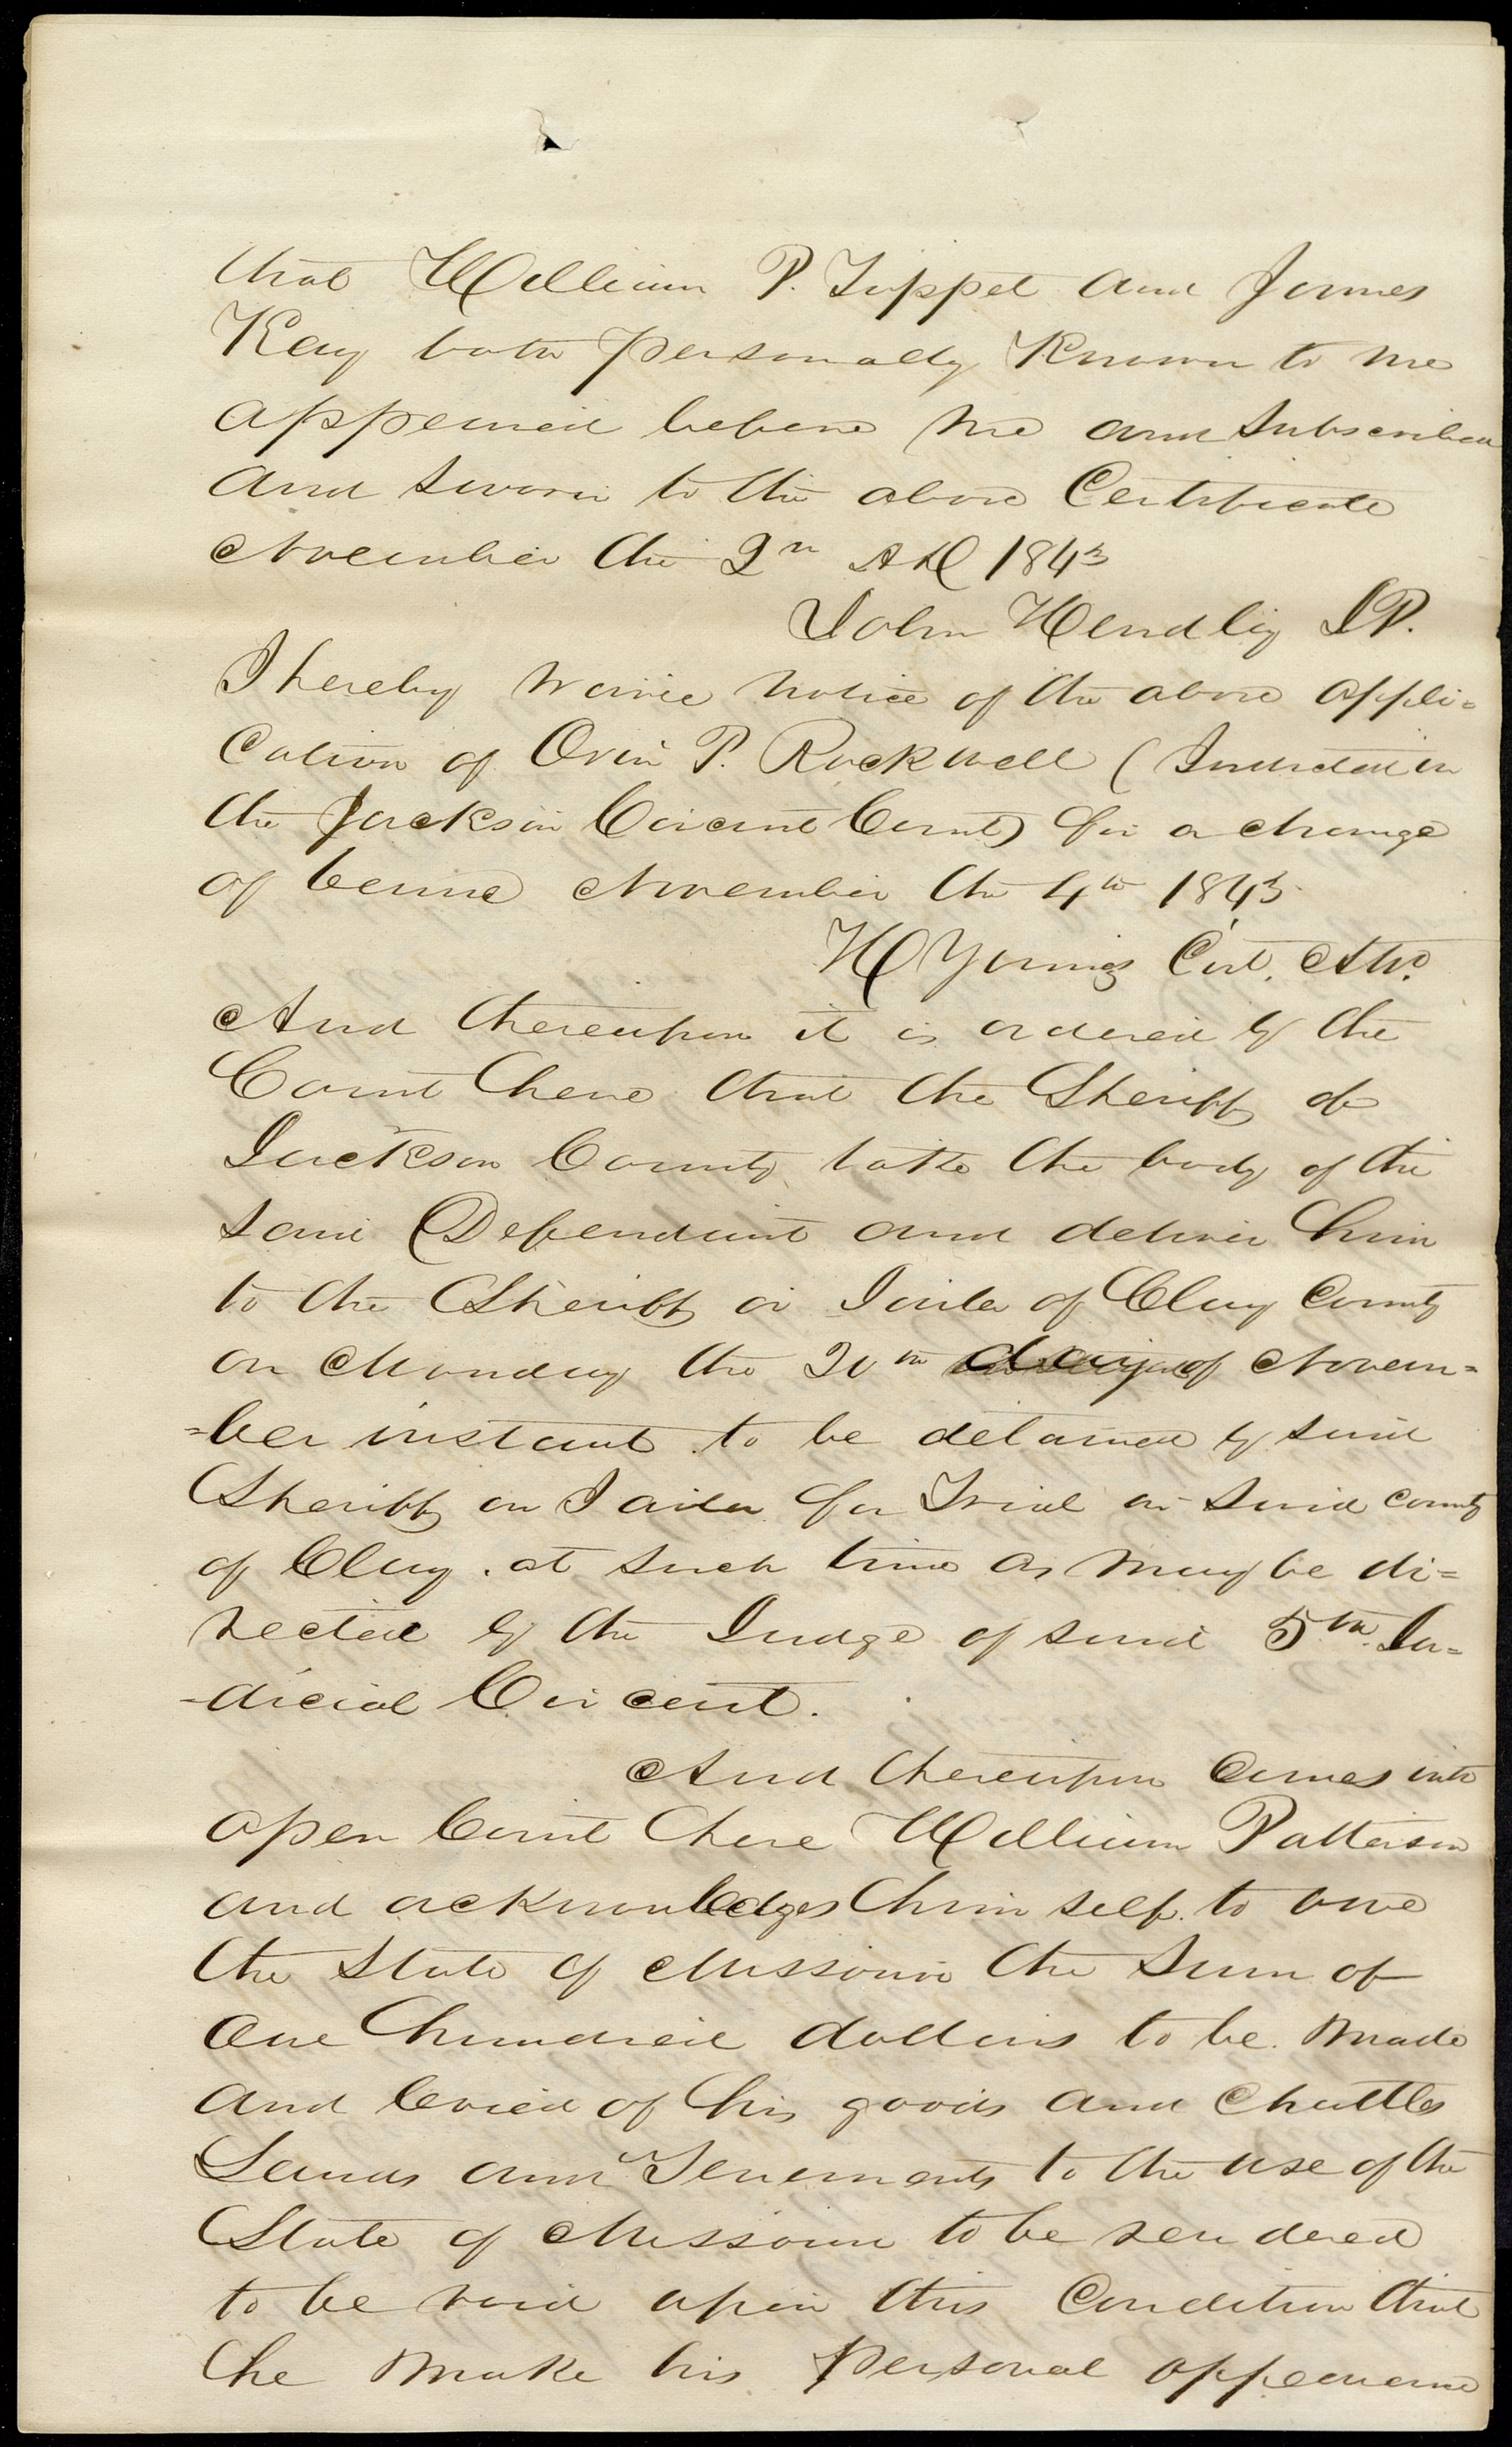 that William P. Tippet and James
Kay both personally Known to me
appeared before me and Subscribed
and Sworn to the above Certificate
November the 2n AD 1843
John Hendly JP.
I hereby waive notice of the above appli=
cation of Orin P. Rockwell (Indicted in
the Jackson Circuit Court) for a change
of Venue November the 4th 1843
H Young Cirt. Atto.
And thereupon it is ordered by the
Court here that the Sheriff of
Jackson County take the body of the
said Defendant and deliver him
to the Sheriff or Jailer of Clay County
on Monday the 20th day of Novem=
=ber instant to be detained by said
Sheriff or Jailer for Trial in said county
of Clay. at such time as may be di=
rected by the Judge of said 5th. Ju=
-dicial Circuit.
And thereupon comes into
open Court here William Patterson
and acknowledges himself to owe
the State of Missouri the Sum of
one hundred dollars to be made
and levied of his goods and Chattles
Lands and Tenements to the use of the
State of Missouri to be rendered
to be void upon this Condition that
he make his personal appearance